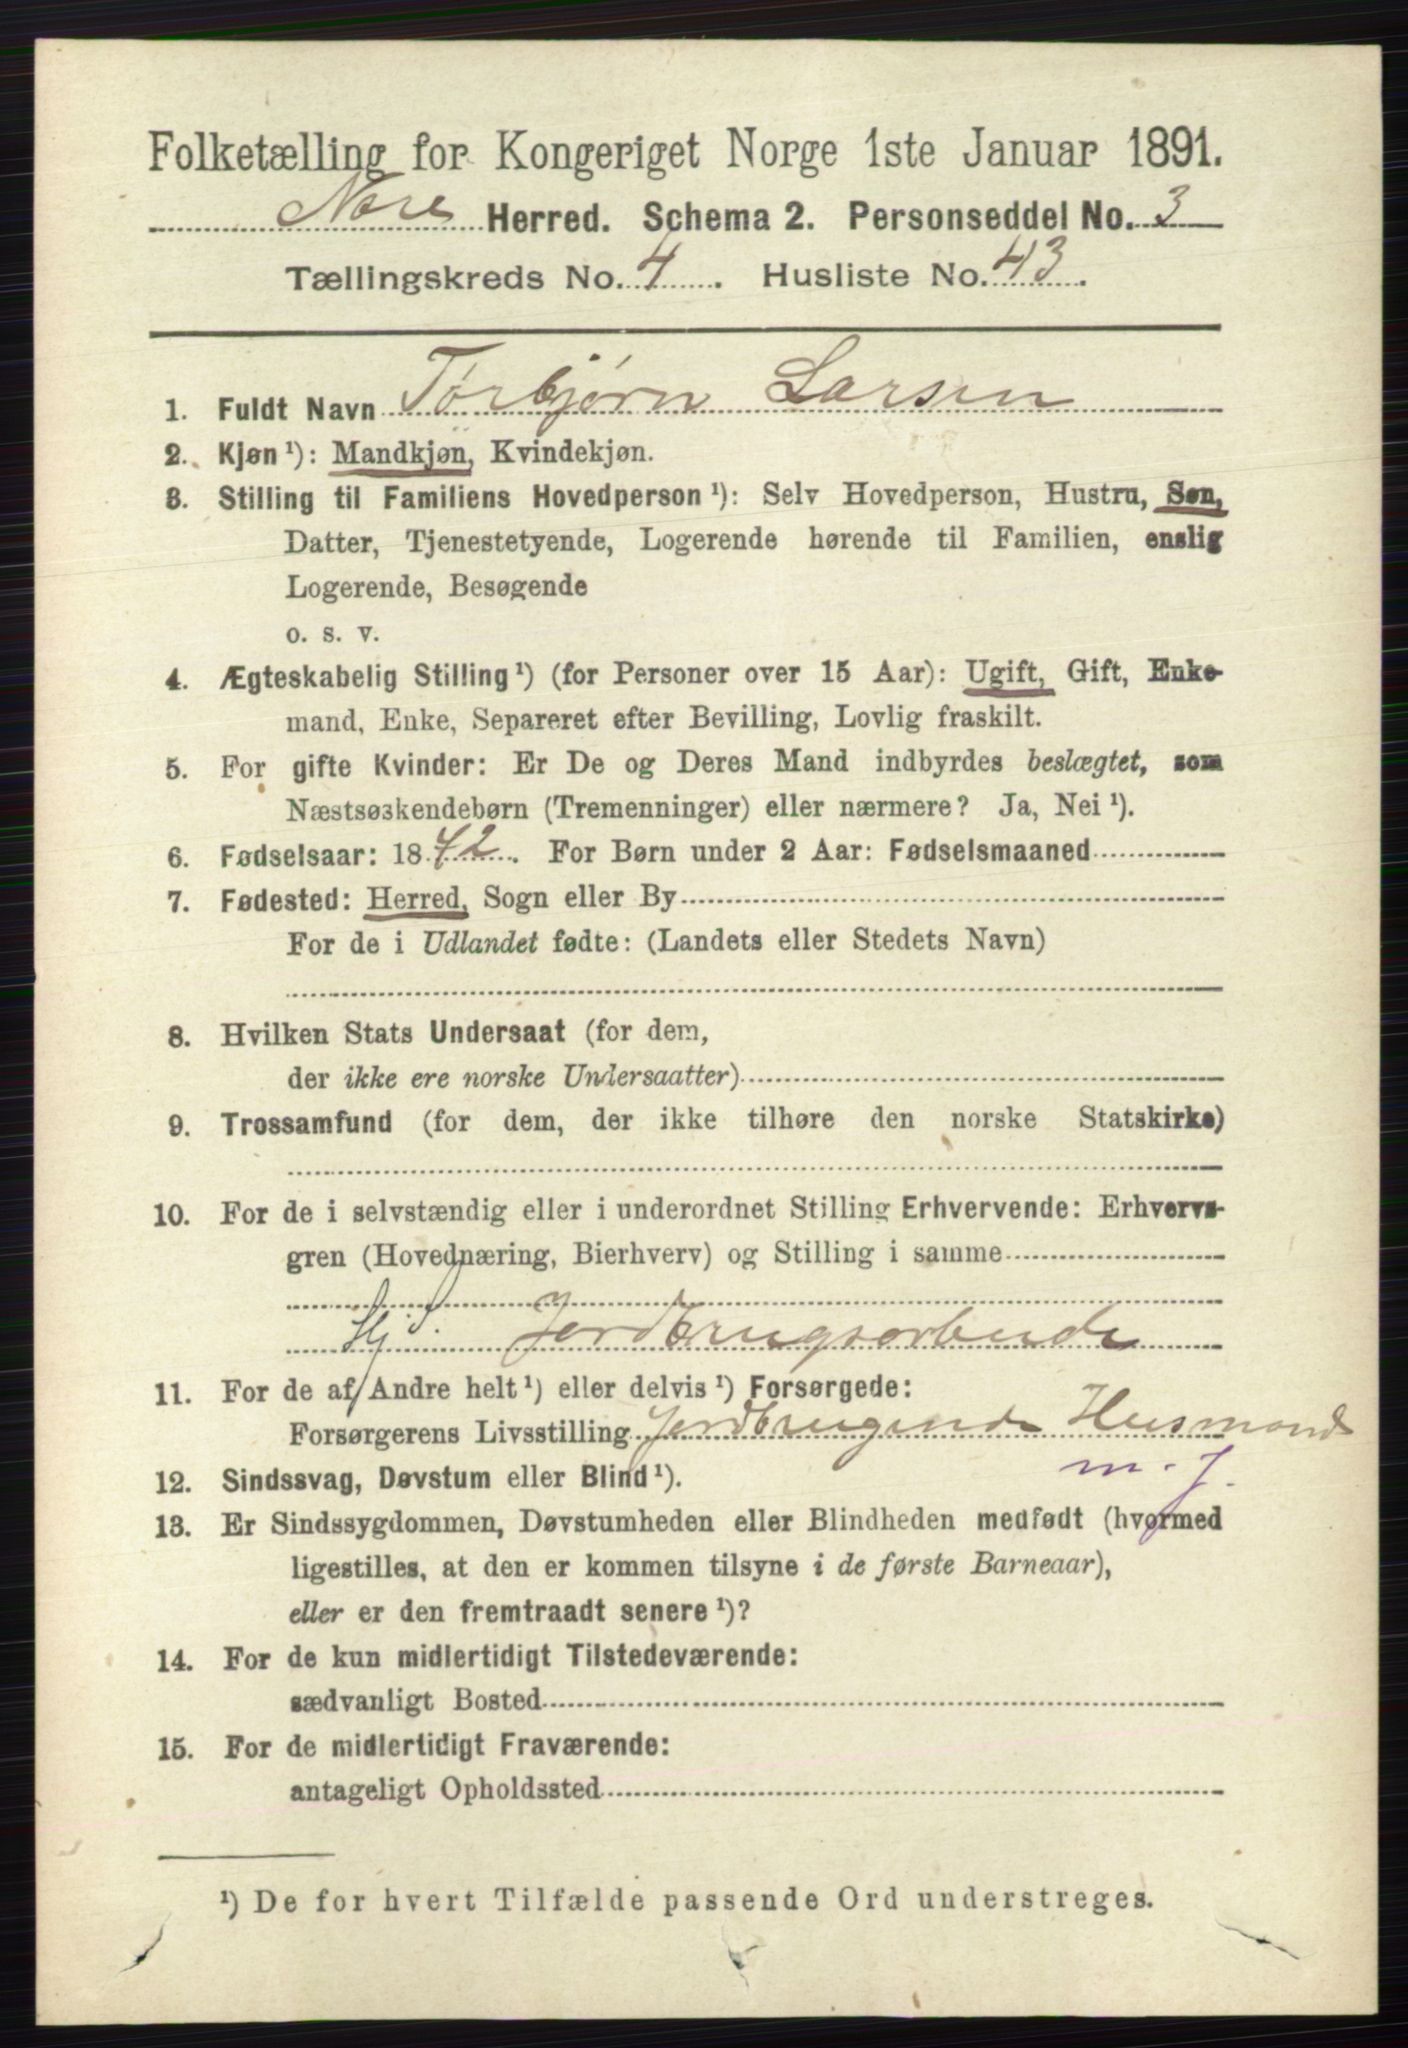 Folketælling for Kongeriget Norge 1ste Januar 1891.
Nore Herred. Schema 2. Personseddel No. 3
Tællingskreds No. 4. Husliste No. 43.
1. Fuldt Navn Torbjørn Larsen
2. Kjøn ¹): Mandkjøn, Kvindekjøn.
3. Stilling til Familiens Hovedperson ¹): Selv Hovedperson, Hustru, Søn,
Datter, Tjenestetyende, Logerende hørende til Familien, enslig
Logerende, Besøgende
o. s. v.
4. Ægteskabelig Stilling ¹) (for Personer over 15 Aar): Ugift, Gift, Enke-
mand, Enke, Separeret efter Bevilling, Lovlig fraskilt.
5. For gifte Kvinder: Er De og Deres Mand indbyrdes beslægtet, som
Næstsøskendebørn (Tremenninger) eller nærmere? Ja, Nei ¹).
6. Fødselsaar: 1842. For Børn under 2 Aar: Fødselsmaaned
7. Fødested: Herred, Sogn eller By
For de i Udlandet fødte: (Landets eller Stedets Navn)
8. Hvilken Stats Undersaat (for dem,
der ikke ere norske Undersaatter)
9. Trossamfund (for dem, der ikke tilhøre den norske Statskirke)
10. For de i selvstændig eller i underordnet Stilling Erhvervende: Erhvervs-
gren (Hovednæring, Bierhverv) og Stilling i samme
Jordbrugsarbeide
11. For de af Andre helt ¹) eller delvis ¹) Forsørgede:
Forsørgerens Livsstilling Jordbrugende Husmand
m. J.
12. Sindssvag, Døvstum eller Blind ¹).
13. Er Sindssygdommen, Døvstumheden eller Blindheden medfødt (hvormed
ligestilles, at den er kommen tilsyne i de første Barneaar),
eller er den fremtraadt senere ¹)?
14. For de kun midlertidigt Tilstedeværende:
sædvanligt Bosted
15. For de midlertidigt Fraværende:
antageligt Opholdssted
¹) De for hvert Tilfælde passende Ord understreges.